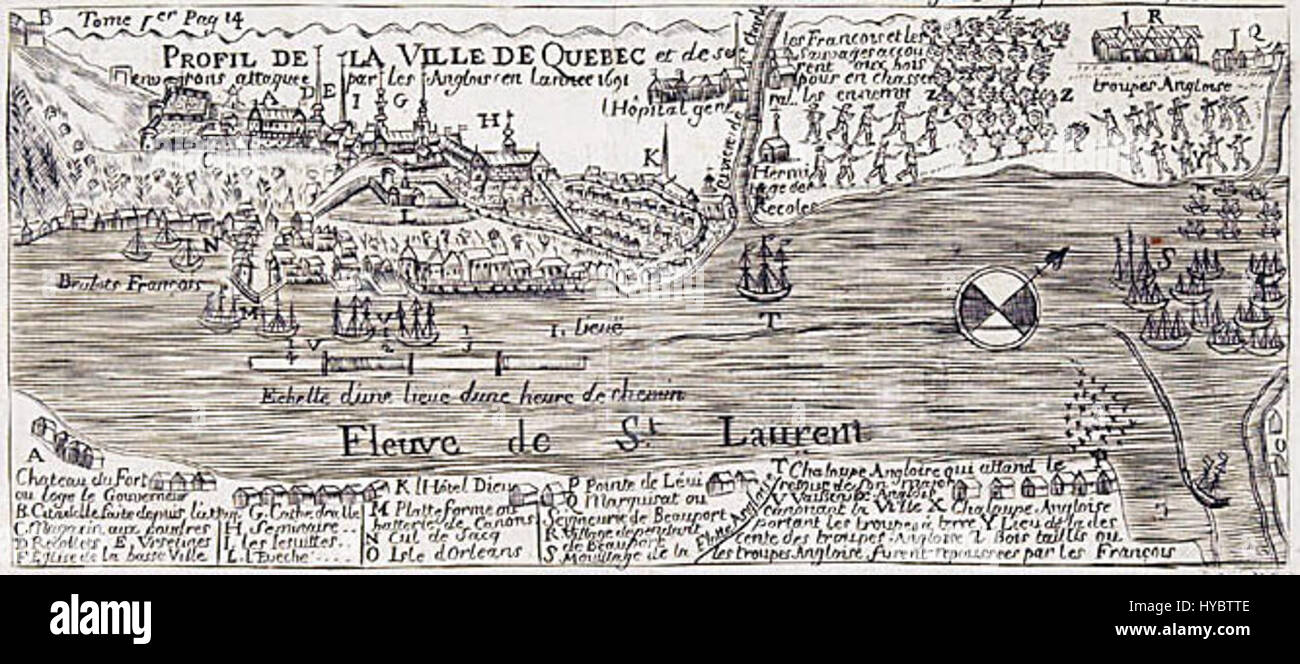 Tome 1.er Pag 14
PROFIL DE LA VILLE DE QUEBEC et de se
environs attaquée par les Anglois en lannee 1691
les Francois et les
Sauvages accou
rent aux bois
pour en chasser
les ennemis
Z Z
Z Z Z
I R
I Q
troupes Angloise
l Hôpital gen
ral
A D E I G
H
K
C
L
N
M
Riviere de St Charle
Hermi
tage de
Recoles
Brulots François
S
T
V
V
1/4 1/2 1/3 1. Lieuë
Echelle dune lieuë dune heure de chemin
Fleuve de St. Laürent
O
A
Chateau du Fort
ou loge le Gouverneur
B Citadelle faite depuis
C Magazin aux poudres
D Recollets E Urselines
F Eglise de la basse Ville
G Cathedralle
H Seminaire
I les Jesuittes
L l'Eveché
K l Hôtel Dieu
M Platteforme ou
batterie de Canons
N Cul de Sacq
O Isle d'Orleans
P Pointe de Lévi
Q Marquisat ou
Seigneurie de Beauport
R Village dependant
de Beauport
S Mouillage de la Flotte Angloise
T Chaloupe Angloise qui attand le
V Vaisseaux Anglois
canonant la Ville X Chaloupe Angloise
portant les troupes à terre Y Lieu de la des
cente des troupes Angloise Z Bois taillis ou
les troupes Angloise furent repoussées par les François
alamy
alamy stock photo
HYBTTE
www.alamy.com